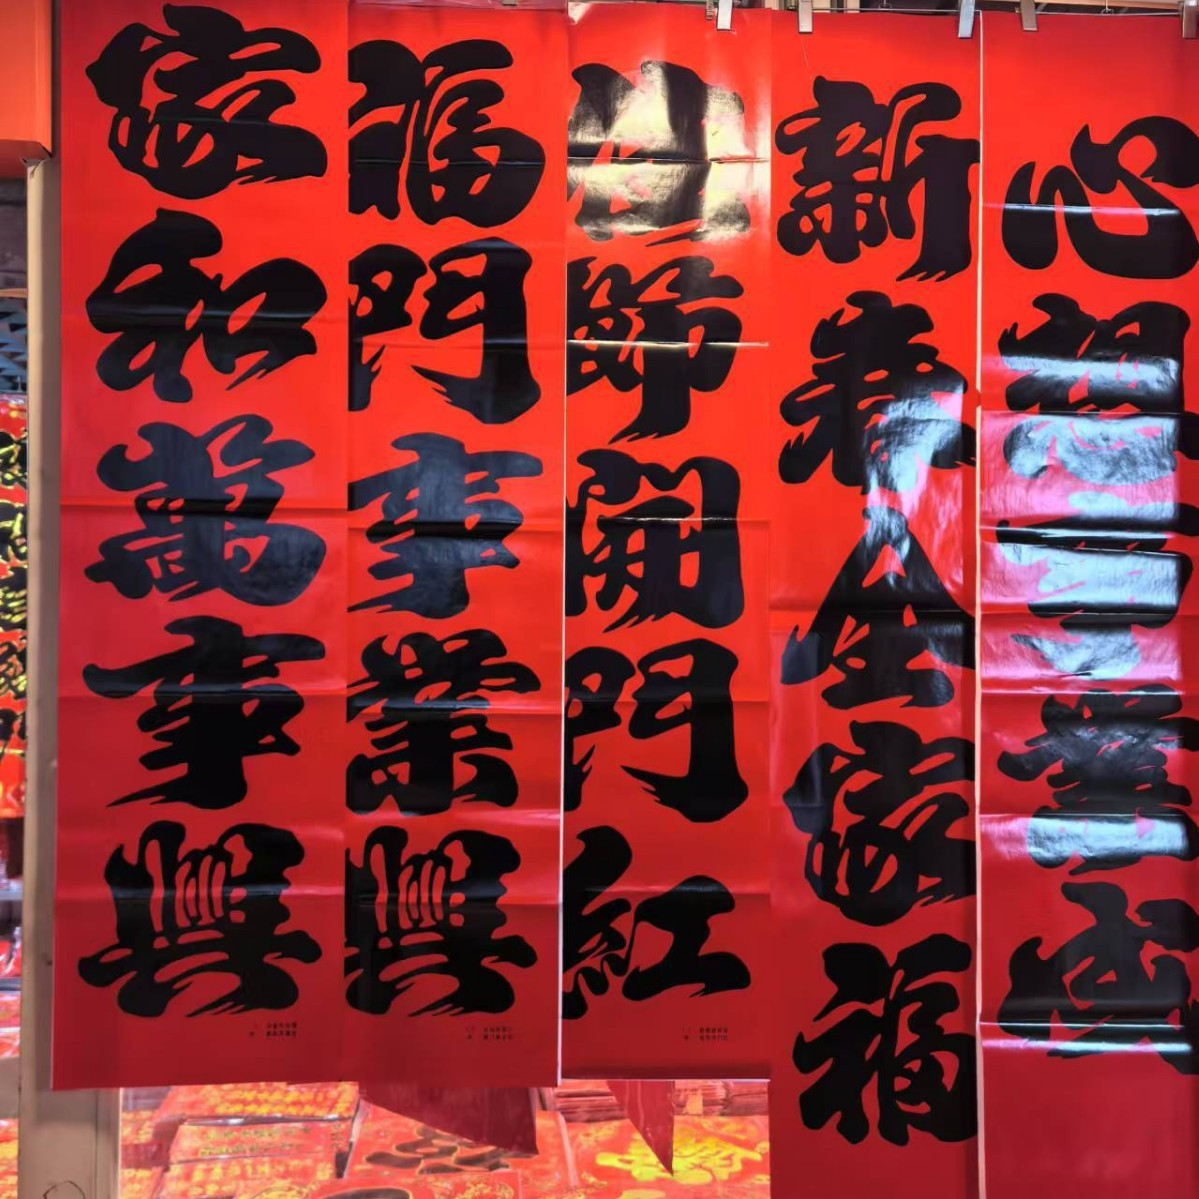 家和萬事興
福門事業興
節開門紅
新春全家福
心想